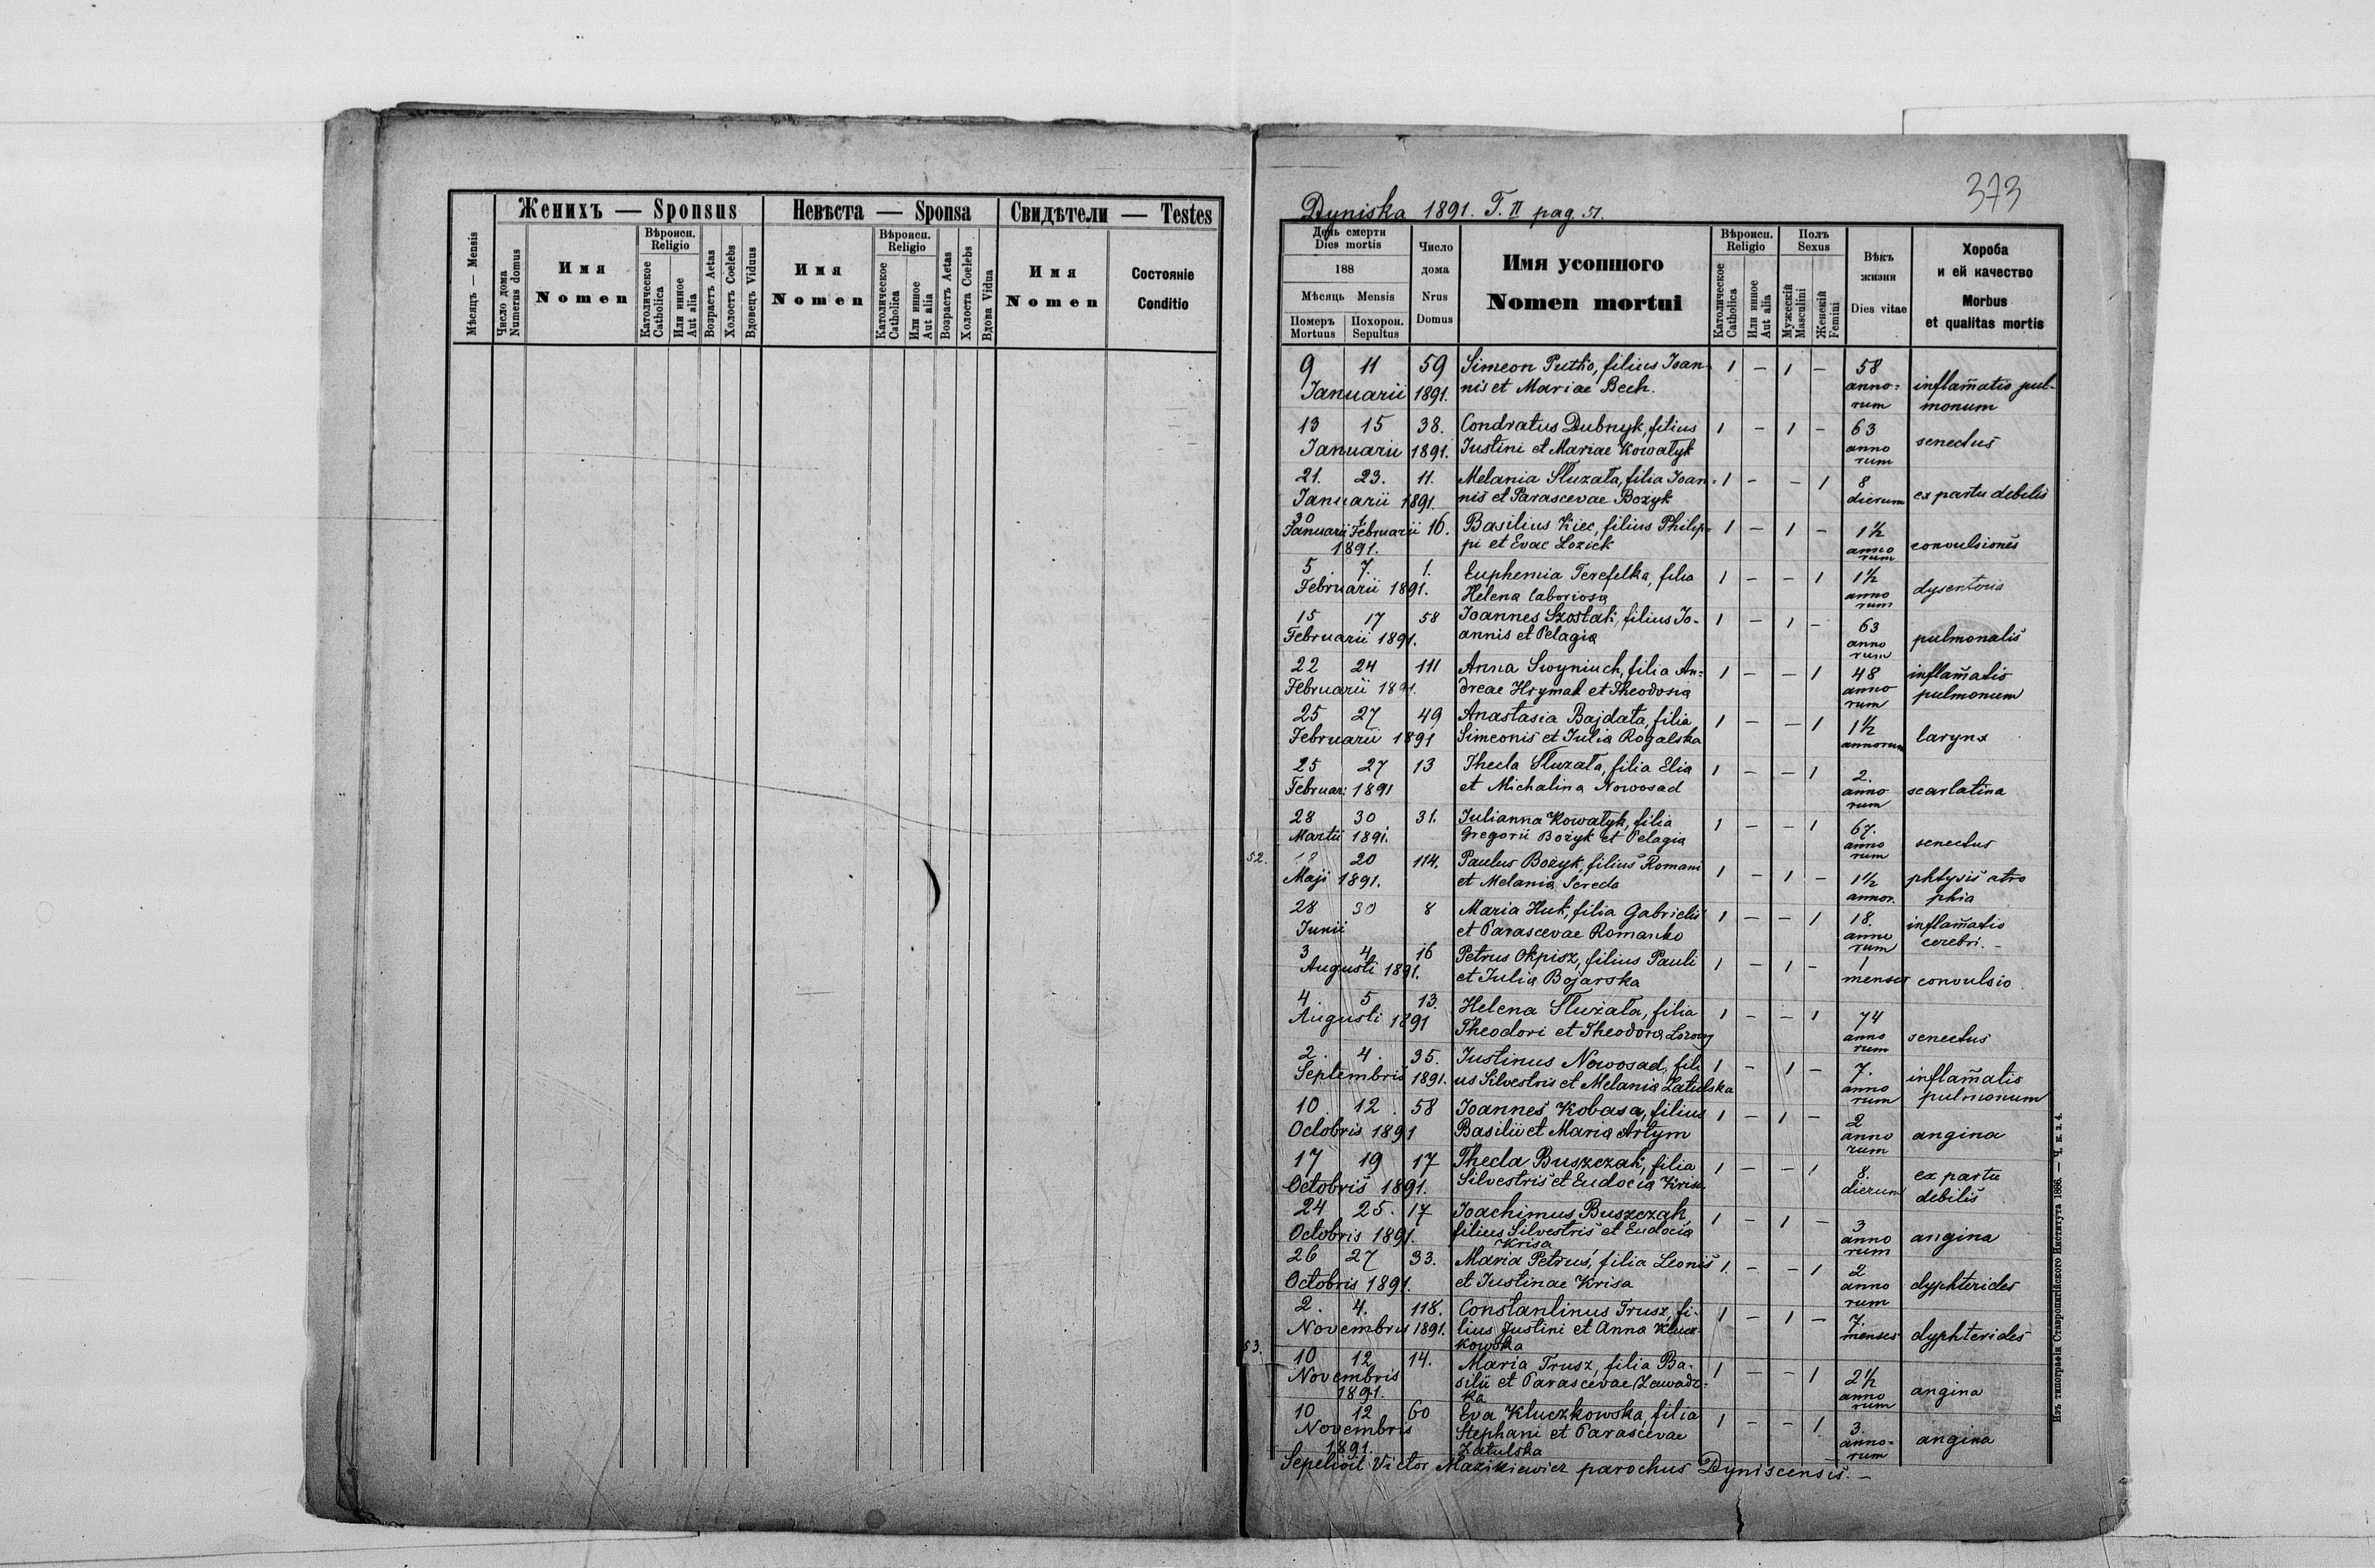 Женихъ — Sponsus
Невѣста — Sponsa
Свидѣтели — Testes
Мѣсяцъ — Mensis
Число дома
Numerus domus
Имя
Nomen
Вѣроисп.
Religio
Католическое
Catholica
Или иное
Aut alia
Возрастъ Aetas
Холостъ Coelebs
Вдовецъ Viduus
Имя
Nomen
Вѣроисп.
Religio
Католическое
Catholica
Или иное
Aut alia
Возрастъ Aetas
Холоста Coelebs
Вдова Vidua
Имя
Nomen
Состояніе
Conditio
373
Dyniska 1891. T. II pag. 51.
День смерти
Dies mortis
188
Мѣсяць Mensis
Померъ
Mortuus
Похорон.
Sepultus
Число
дома
Nrus
Domus
Имя усопшого
Nomen mortui
Вѣроисп.
Religio
Католическое
Catholica
Или инное
Aut alia
Полъ
Sexus
Мужескій
Masculini
Женскій
Femini
Вѣкъ
жизни
Dies vitae
Хороба
и ей качество
Morbus
et qualitas mortis
9 11 59 Simeon Putko, filius Ioan- 1 – 1 – 58
Januarii 1891. nis et Mariae Bech. anno- inflam̄atio pul-
rum monum
13 15 38. Condratus Dubnyk, filius 1 – 1 – 63
Januarii 1891. Iustini et Mariae Kowalyk anno senectus
rum
21. 23. 11. Melania Służała, filia Ioan- 1 – – 1 8
Januarii 1891. nis et Parascevae Bożyk dierum ex partu debilis
30 1 16. Basilius Kiec, filius Philip- 1 – 1 – 1½
Januarii Februarii pi et Evae Lozick anno convulsiones
1891. rum
5 7. 1. Euphemia Terefelka, filia 1 – – 1 1½
Februarii 1891. Helena laboriosa anno dysenteria
rum
15 17 58 Ioannes Szostak, filius Io- 1 – 1 – 63
Februarii 1891. annis et Pelagia anno pulmonalis
rum
22 24 111 Anna Swyniuch, filia An- 1 – – 1 48 inflam̄atio
Februarii 1891. dreae Hrymak et Theodosia anno pulmonum
rum
25 27 49 Anastasia Bajdała, filia 1 – – 1 1½
Februarii 1891 Simeonis et Iulia Rogalska annorum larynx
25 27 13 Thecla Służała, filia Elia 1 – – 1 2.
Februar: 1891 et Michalina Nowosad anno scarlatina
rum
28 30 31. Iulianna Kowalyk, filia 1 – – 1 67.
Martii 1891. Gregorii Bożyk et Pelagia anno senectus
rum
52. 18 20 114. Paulus Bożyk, filius Romani 1 – 1 – 1½ phtysis atro
Maji 1891. et Melania Sereda annor. phia
28 30 8 Maria Huk, filia Gabrielis 1 – – 1 18. inflam̄atio
Junii et Parascevae Romanko anno cerebri. –
rum
3 4 16 Petrus Okpisz, filius Pauli 1 – 1 – 1
Augusti 1891. et Iulia Bojarska menses convulsio
4. 5 13. Helena Służała, filia 1 – – 1 74
Augusti 1891 Theodori et Theodora anno senectus
rum
2. 4. 35. Iustinus Nowosad, fili 1 – 1 – 7. inflam̄atio
Septembris 1891. us Silvestris et Melania Zatulska anno pulmonum
rum
10 12. 58 Ioannes Kobasa, filius 1 – 1 – 2
Octobris 1891 Basilii et Maria Artym anno angina
rum
17 19 17 Thecla Buszczak, filia 1 – – 1 8. ex partu
Octobris 1891. Silvestris et Eudocia Krisa dierum debilis
24 25. 17 Ioachimus Buszczak 1 – 1 – 3
Octobris 1891. filius Silvestris et Eudocia anno angina
Krisa rum
26 27 33. Maria Petruś, filia Leonis 1. – – 1 2
Octobris 1891. et Iustinae Krisa anno dyphterides
rum
2. 4. 118. Constantinus Trusz, fi- 1 – 1 – 7.
Novembris 1891. lius Justini et Anna Klucz- menses dyphterides
kowska
53. 10 12 14. Maria Trusz, filia Ba- 1 – – 1 2½
Novembris silii et Parascevae Zawadz- anno angina
1891. ka rum
10 12 60 Eva Kluczkowska, filia 1 – – 1 3.
Novembris Stephani et Parascevae anno- angina
1891. Zatulska rum
Sepelivit Victor Mazikiewicz parochus Dyniscensis. –
Изъ типографіи Ставропигійского Института 1886. — Ч. к. з. 4.